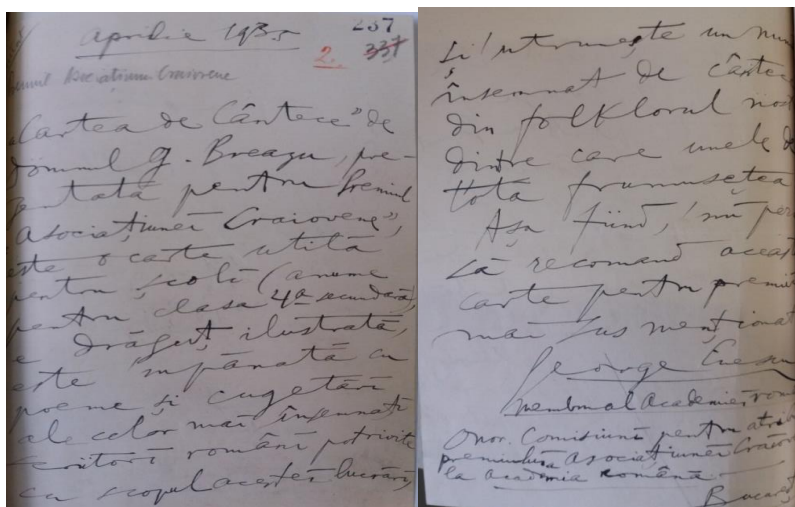 Aprilie 1935
237
2. 337
Premiul Asociațiunii Craiovene
„Cartea de Cântece” de
Domnul G. Breazu, pre-
zentată pentru „Premiul
Asociațiunei Craiovene”,
este o carte utilă
pentru școli (anume
pentru clasa 4ª secundară),
e drăguț ilustrată,
este împănată cu
poeme și cugetări
ale celor mai însemnați
scriitori români potrivite
cu scopul acestei lucrări,
și întrunește un num
însemnat de cântece
din folklorul nost
dintre care unele de
totă frumusețea
Așa fiind, îmi per
să recomand aceast
carte pentru premiul
mai sus menționat
George Enescu
membru al Academiei rom
Onor. Comisiuni pentru atrib
premiului Asociațiunei Craiov
la Academia Română
Bucureșt